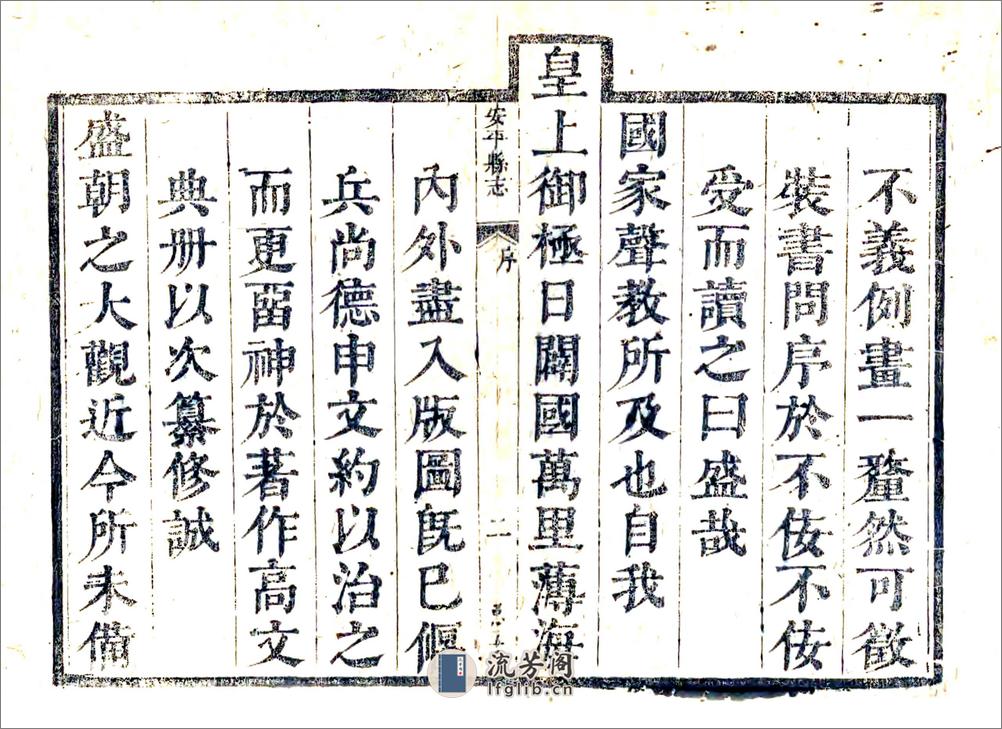 不義例畫一釐然可徵
裝書問序於不佞不佞
受而讀之曰盛哉
國家聲教所及也自我
皇上御極日闢國萬里薄海
安平縣志
序
二
內外盡入版圖旣已偃
兵尚德申文約以治之
而更畱神於著作高文
典册以次纂修誠
盛朝之大觀近今所未備
流芳阁
lfglib.cn